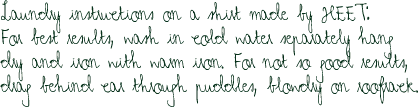 Laundry instructions on a shirt made by HEET:
For best results, wash in cold water separately hang
dry and iron with warm iron. For not so good results,
drag behind car through puddles, blowdry on roofrack.